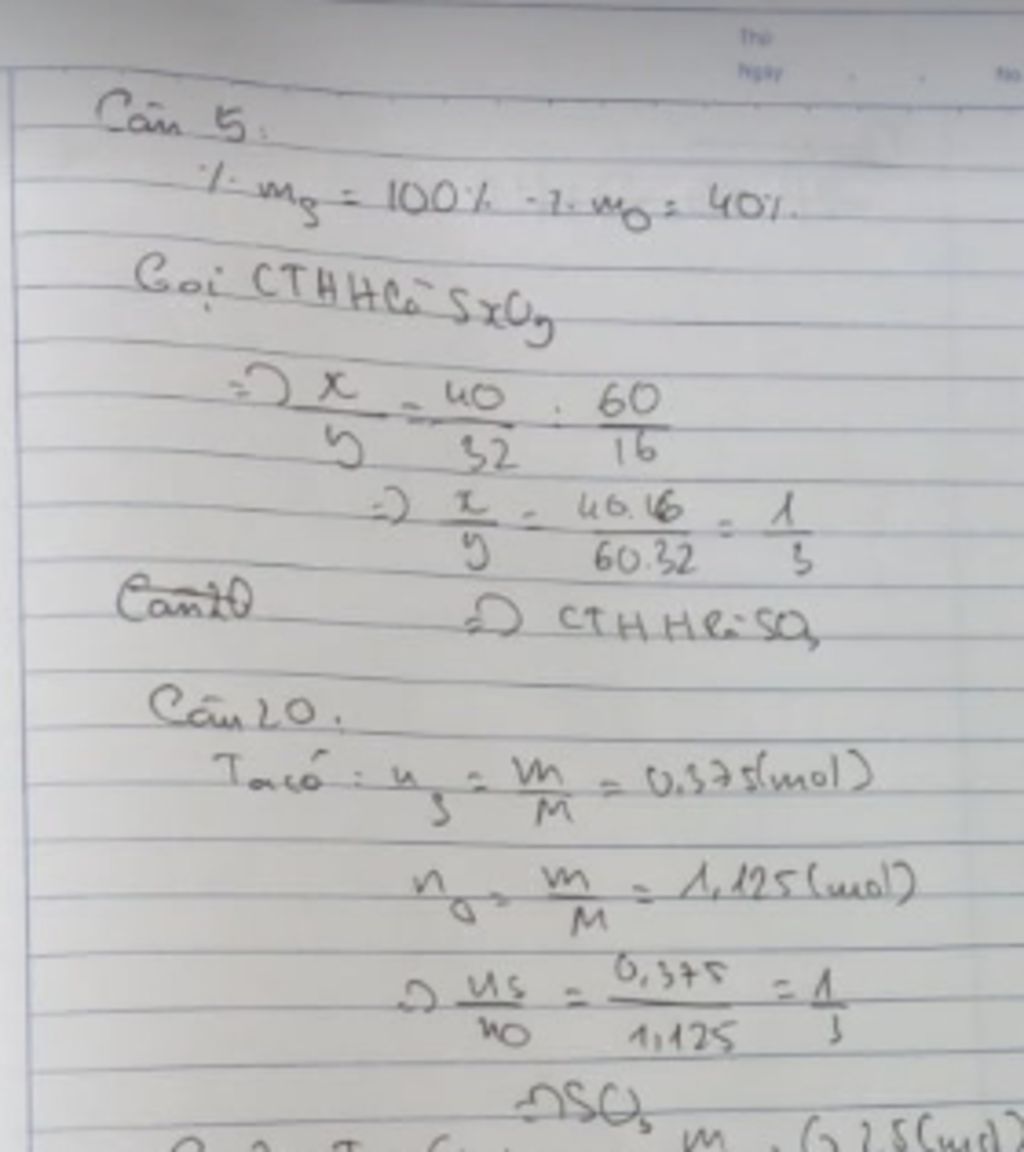 Thứ
Ngày . . No
Câu 5:
% mS = 100% - % mO = 40%.
Gọi CTHH là SxOy
=> x/y = 40/32 : 60/16
=> x/y = 40.16/60.32 = 1/3
Câu 20
=> CTHH là SO3
Câu 20.
Ta có : nS = m/M = 0,375(mol)
nO = m/M = 1,125(mol)
=> nS/nO = 0,375/1,125 = 1/3
=> SO3